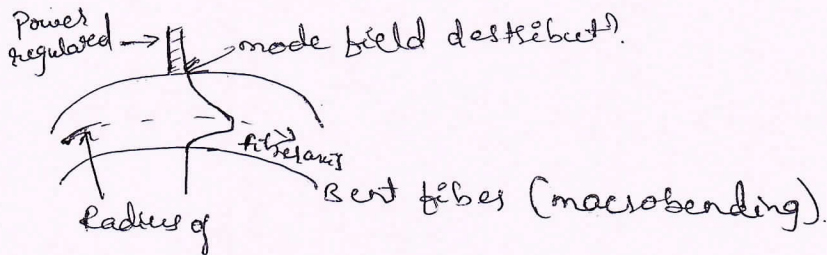 Power
regulared → mode field destributn.
fibre axis
Bent fiber (macrobending).
Radius of